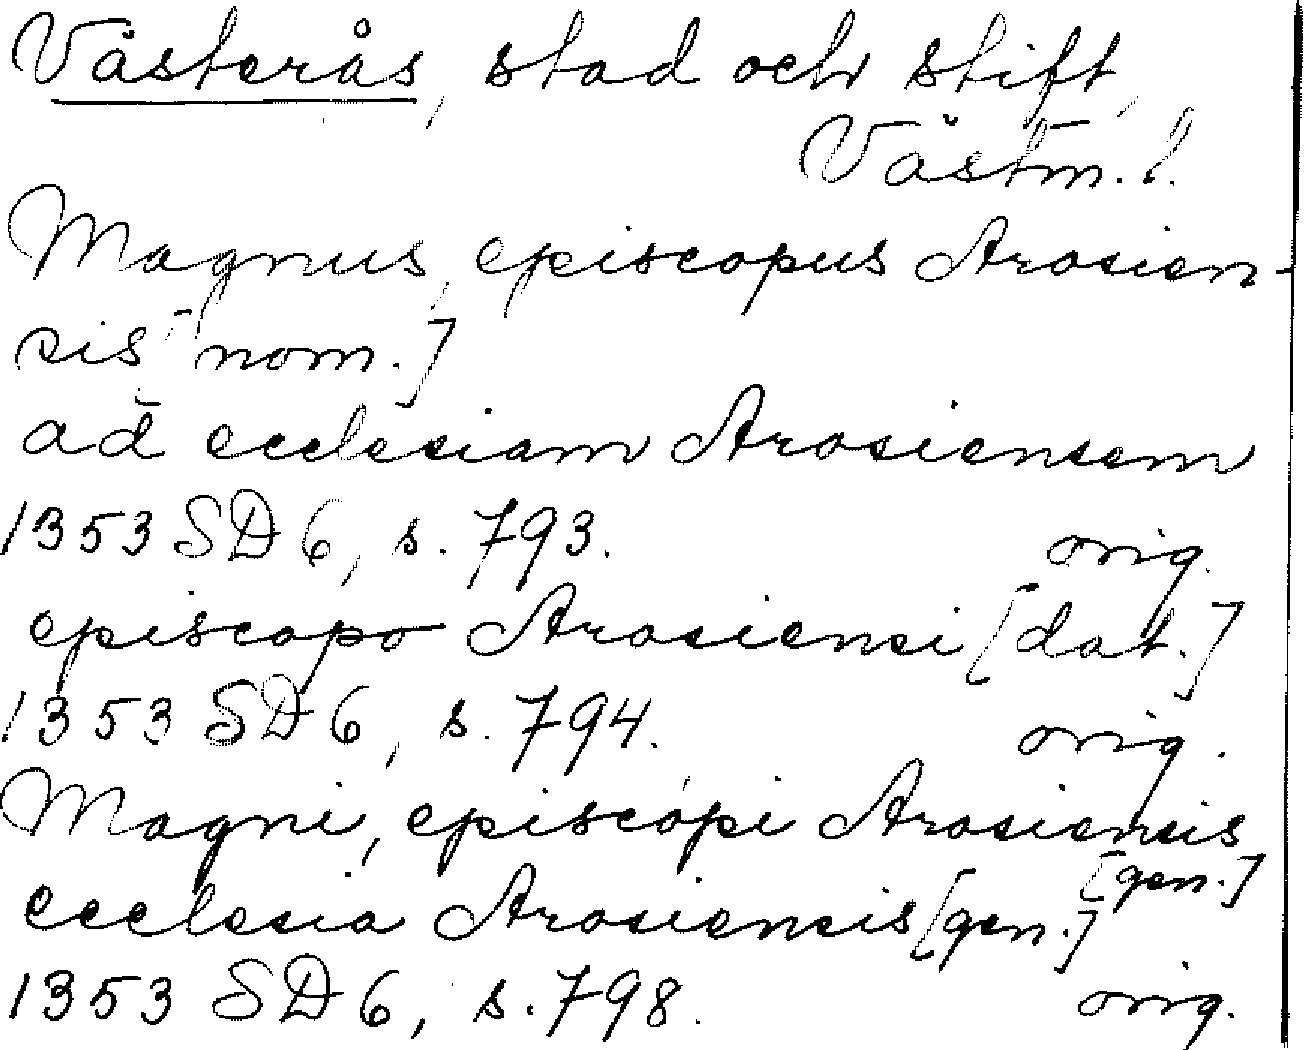 Västerås, stad och stift,
Västm. l.
Magnus, episcopus Arosien-
sis [nom.]
ad ecclesiam Arosiensem
1353 SD 6, s. 793. orig.
episcopo Arosiensi [dat.]
1353 SD 6, s. 794. orig.
Magni, episcopi Arosiensis
[gen.]
ecclesia Arosiensis [gen.]
1353 SD 6, s. 798. orig.